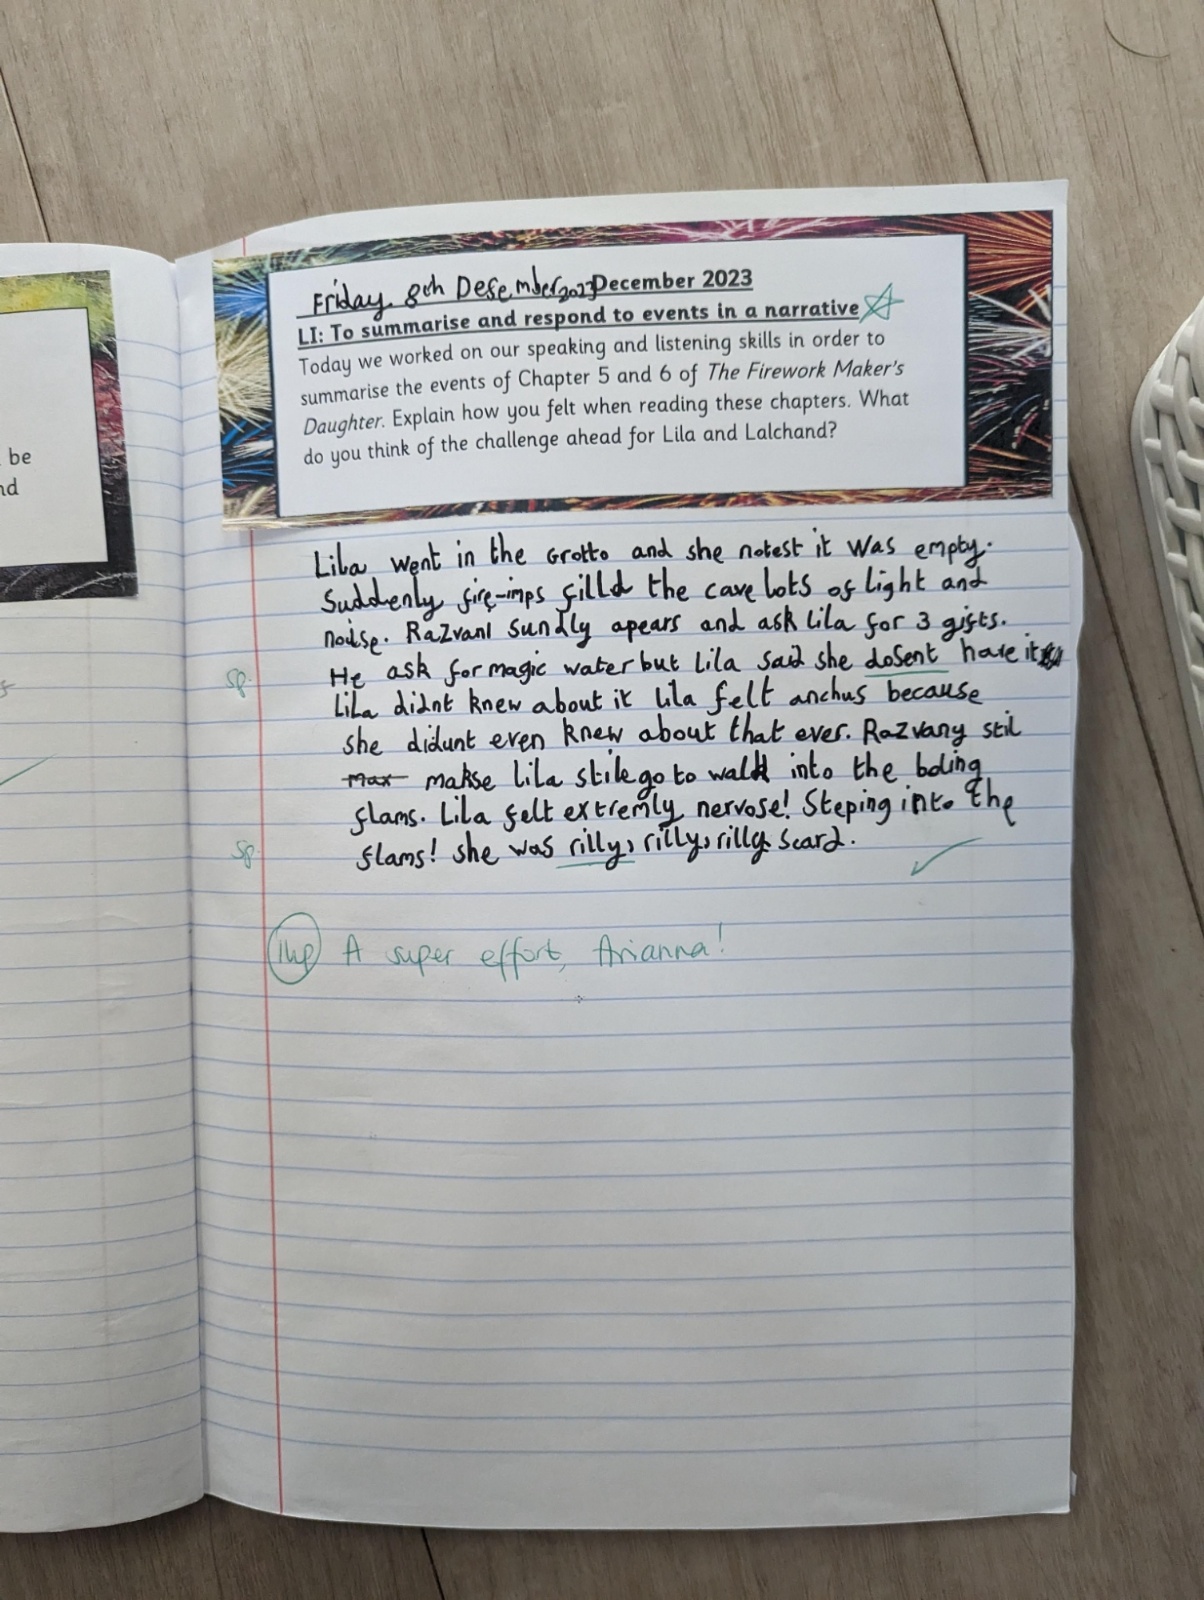 be
nd
Friday 8th Desember 2023 December 2023
LI: To summarise and respond to events in a narrative
Today we worked on our speaking and listening skills in order to
summarise the events of Chapter 5 and 6 of The Firework Maker's
Daughter. Explain how you felt when reading these chapters. What
do you think of the challenge ahead for Lila and Lalchand?
Lila went in the Grotto and she notest it was empty.
Suddenly fire-imps filld the cave lots of light and
noise. Razvani sundly apears and ask Lila for 3 gifts.
sp. He ask for magic water but Lila said she dosent have it
Lila didnt knew about it Lila felt anchus because
she didunt even knew about that ever. Razvany stil
max makse Lila stile go to walk into the boling
flams. Lila felt extremly nervose! Steping into the
sp. flams! she was rilly, rilly, rilly scard.
1hp A super effort, Arianna!